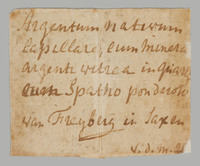 Argentum nativum
capillare, cum minera
argenti vitrea in Quarz
cum Spatho ponderoso
von Freyberg in Saxen